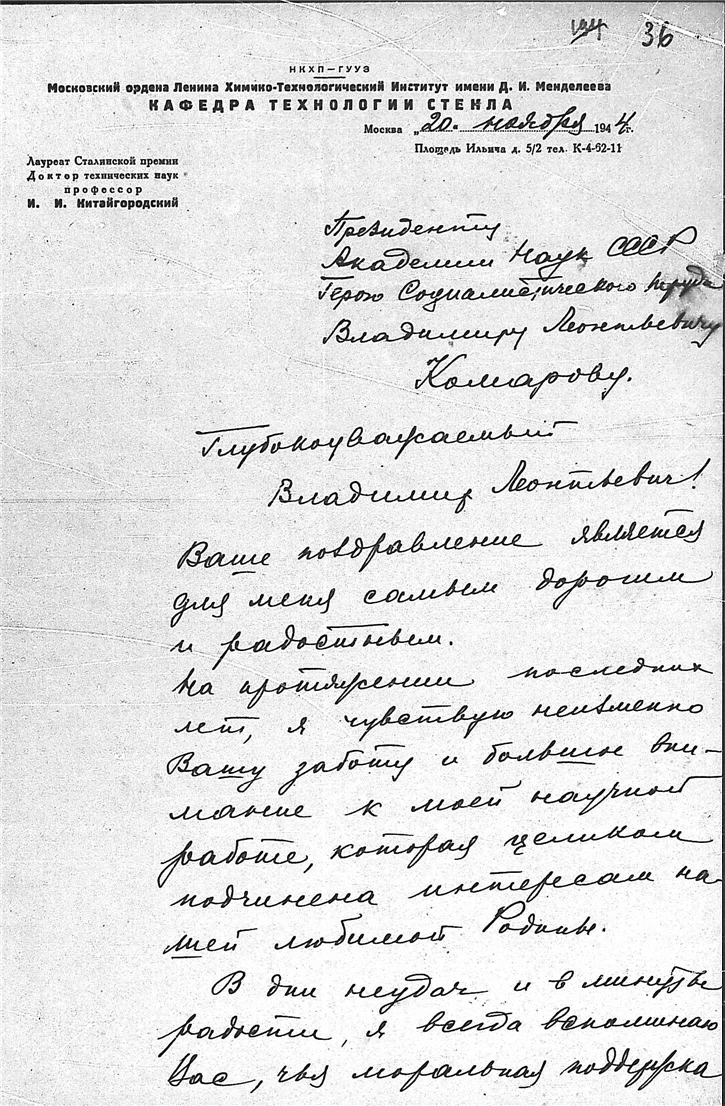 194 36
НКХП—ГУУЗ
Московский ордена Ленина Химико-Технологический Институт имени Д. И. Менделеева
КАФЕДРА ТЕХНОЛОГИИ СТЕКЛА
Москва „20" ноября 1944г.
Площадь Ильича д. 5/2 тел. К-4-62-11
Лауреат Сталинской премии
Доктор технических наук
профессор
И. И. Китайгородский
Президенту
Академии Наук СССР
Герою Социалистического труда
Владимиру Леонтьевичу
Комарову.
Глубокоуважаемый
Владимир Леонтьевич!
Ваше поздравление является
для меня самым дорогим
и радостным.
На протяжении последних
лет, я чувствую неизменно
Вашу заботу и большое вни-
мание к моей научной
работе, которая целиком
подчинена интересам на-
шей любимой Родины.
В дни неудач и в минуты
радости, я всегда вспоминаю
Вас, чья моральная поддержка